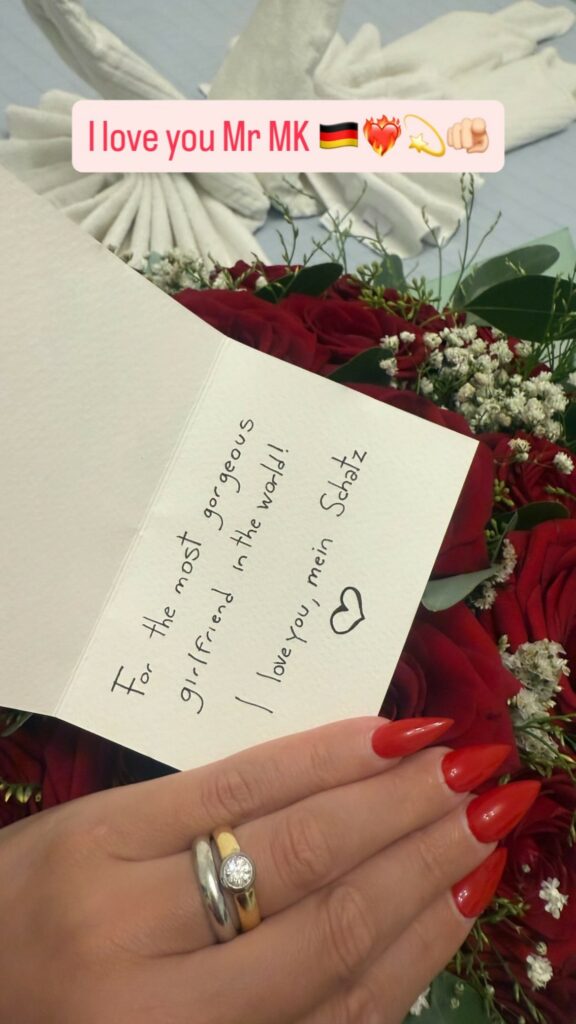 I love you Mr MK 🇩🇪❤️‍🔥💫🫵🏻
For the most gorgeous
girlfriend in the world!
I love you, mein Schatz
♡